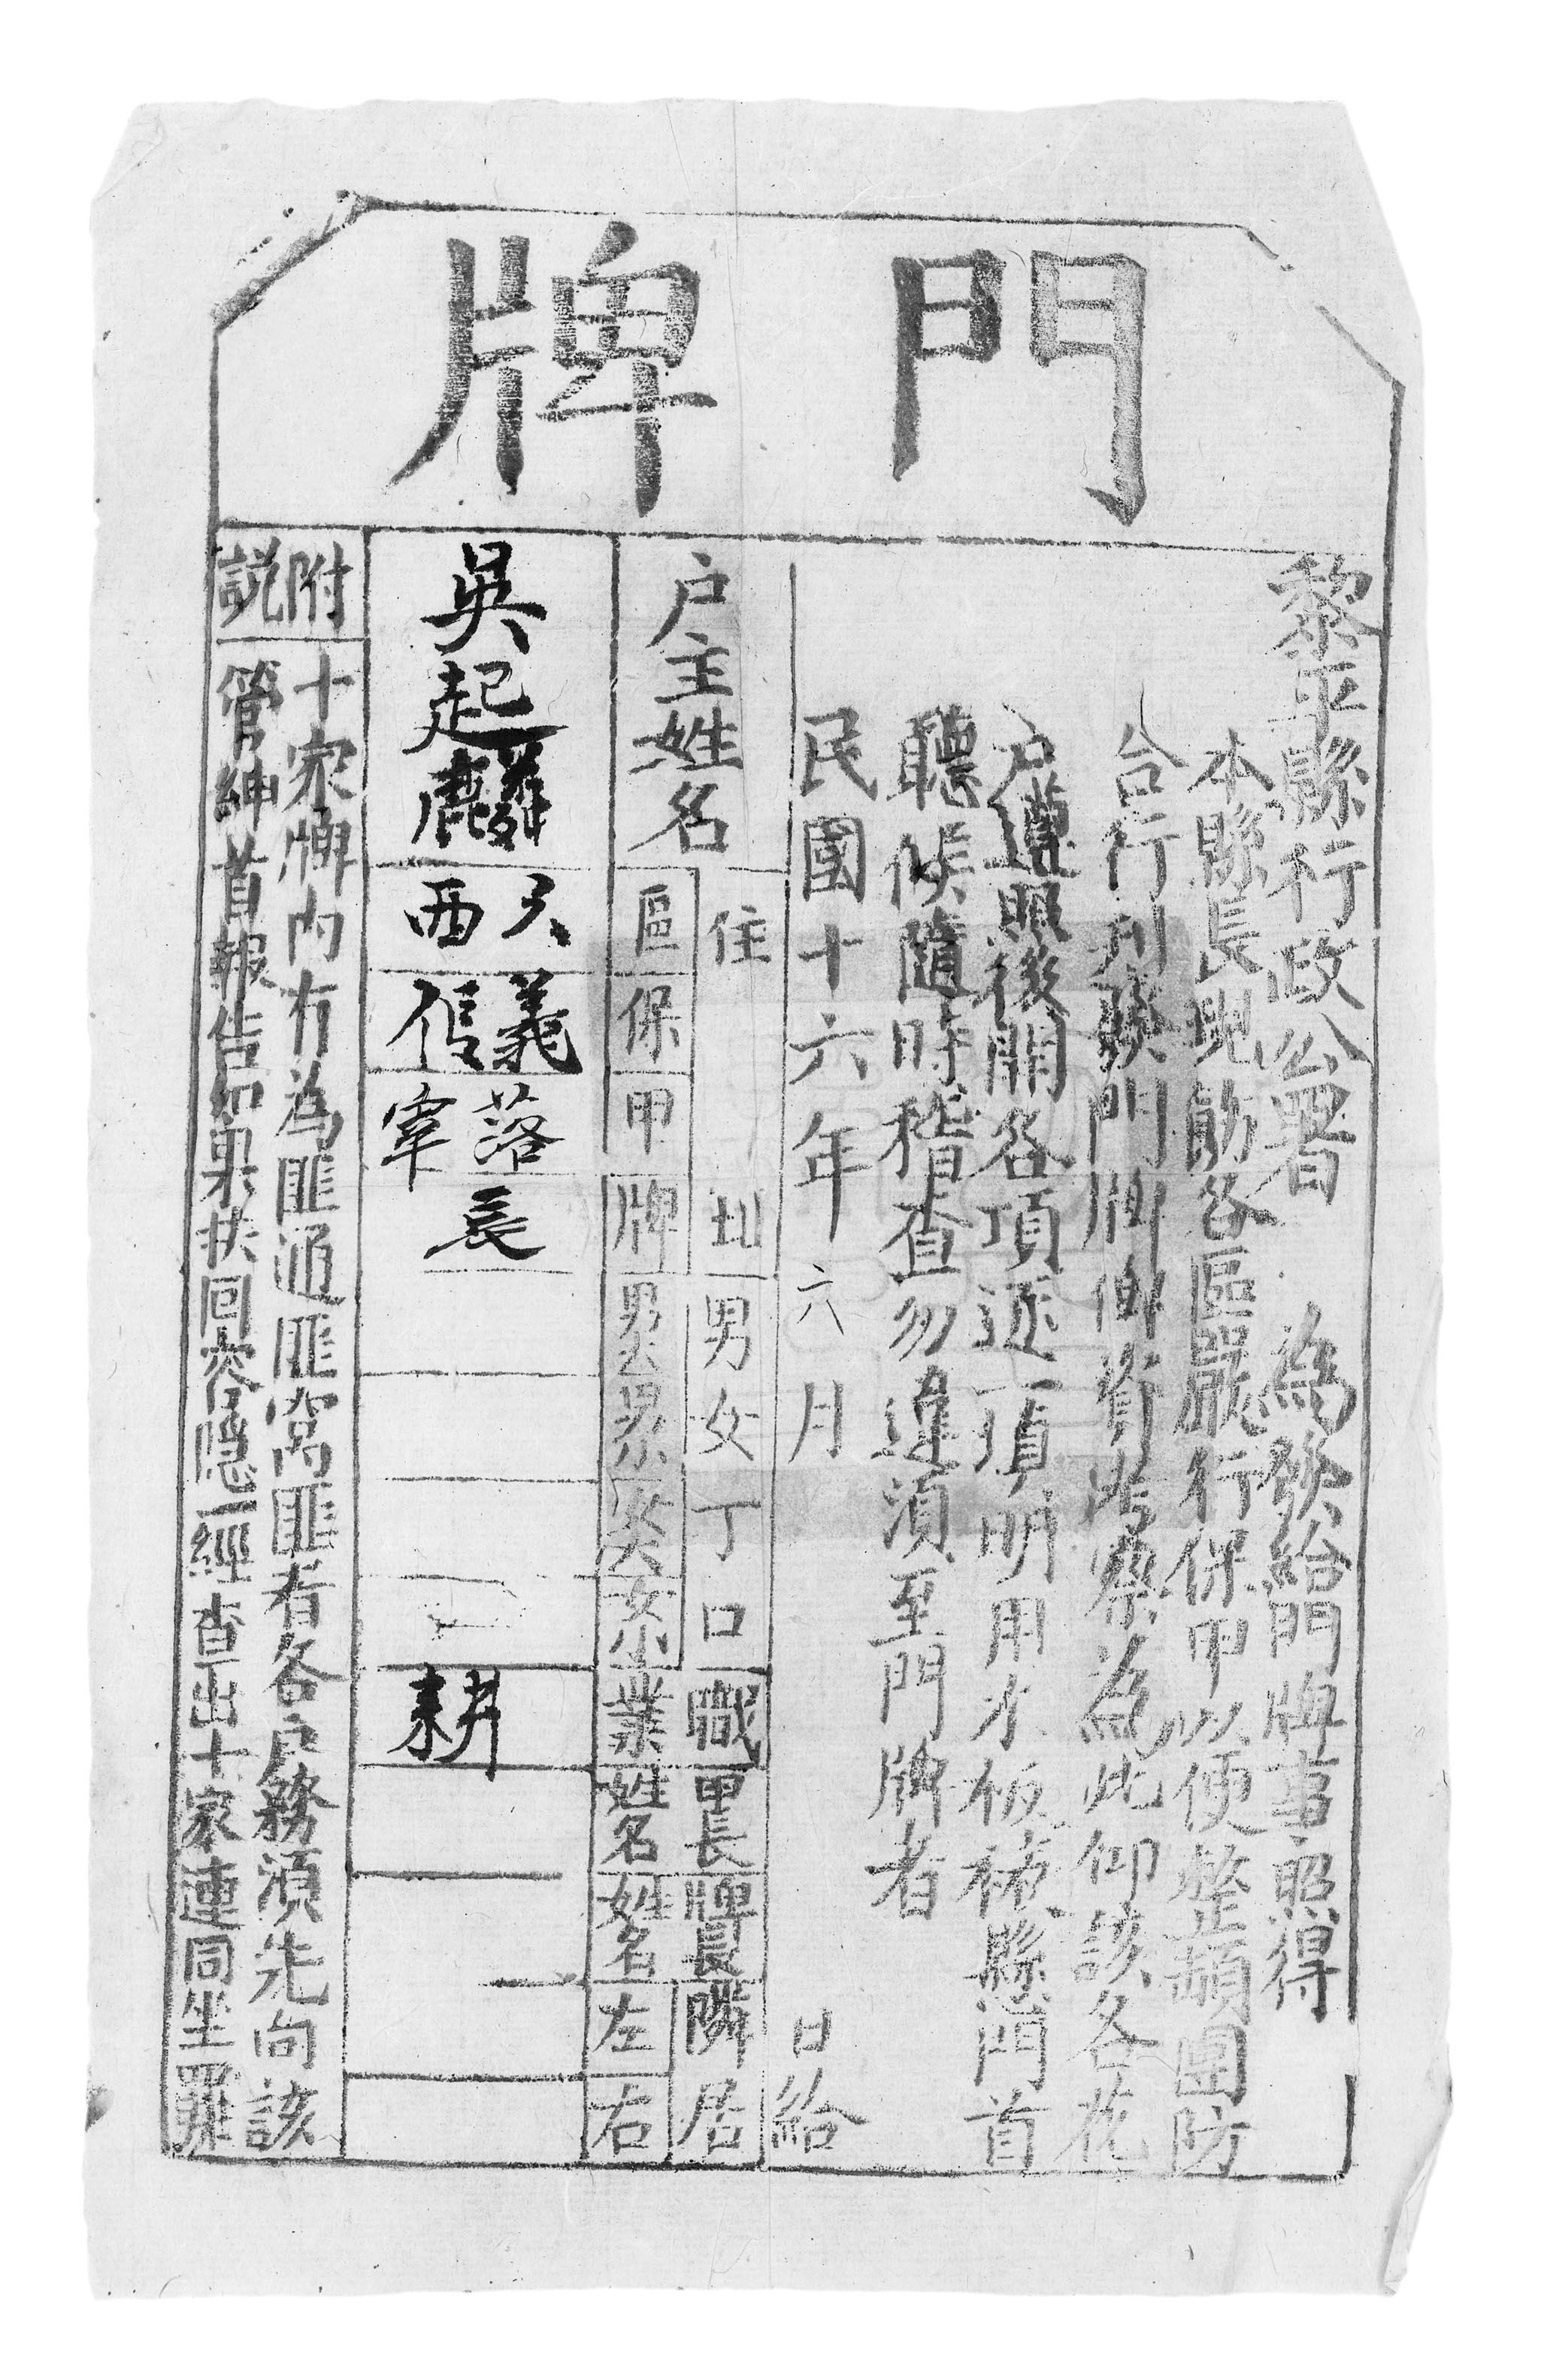 門牌
黎平縣行政公署 為發給門牌事照得
本縣長現飭各區嚴行保甲以便整頓團防
合行刊發門牌俾資考察為此仰該各花
戶遵照後開各項逐一填明用木板裱懸門首
聽候隨時稽查勿違須至門牌者
民國十六年六月 日給
户主姓名
住址
區
保
甲
牌
男女丁口
男大
男小
女大
女小
職業
甲長姓名
牌長姓名
隣居
左
右
吳起麟
西
義
落
耕
附說
十家牌内有為匪通匪窩匪者各户務須先向該
管紳首報告如果扶同容隱一經查出十家連同坐罪